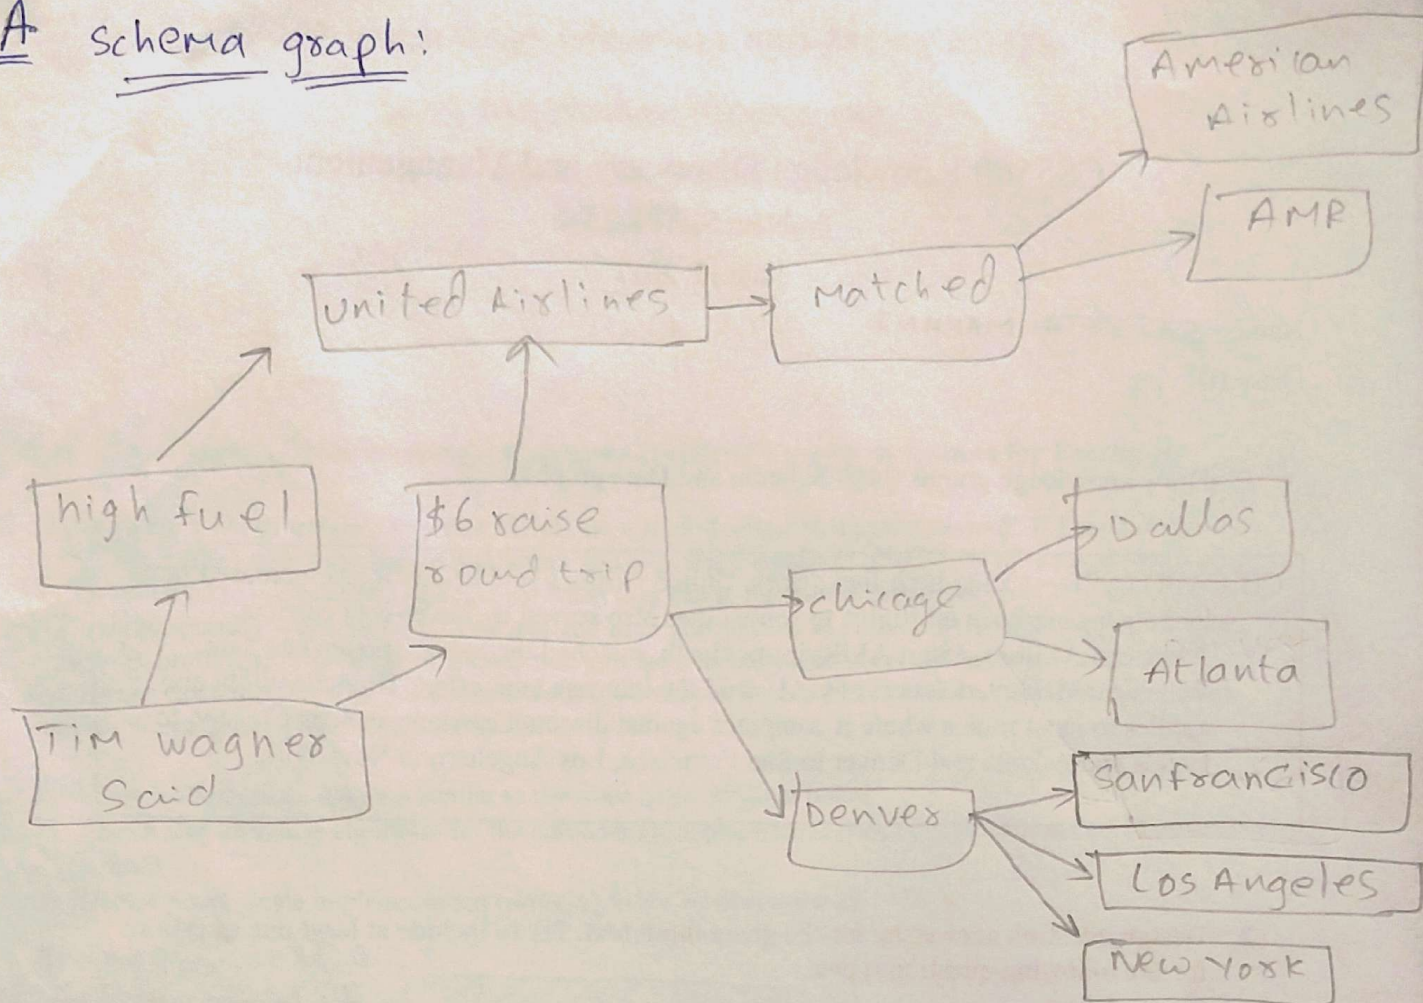 A schema graph:
American
Airlines
AMR
United Airlines
Matched
high fuel
$6 raise
round trip
Dallas
chicago
Atlanta
Tim wagner
Said
Denver
SanfranCisco
Los Angeles
New York